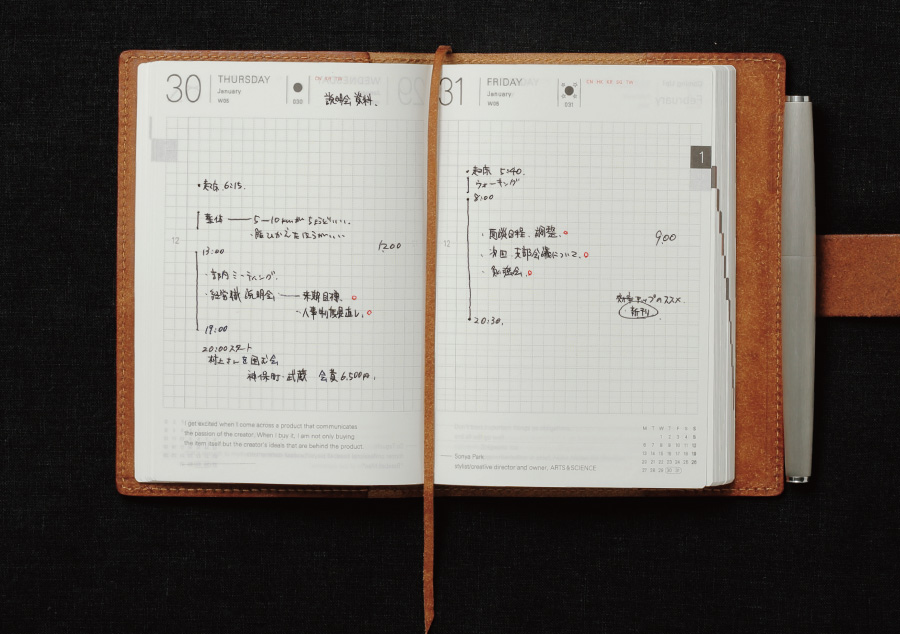 30 THURSDAY
January
W05
030
説明会資料.
・起床 6:15.
整体 — 5〜10 ちょうどいい.
12
12:00
13:00
・部内ミーティング.
・経営職説明会 — 来期目標.
・人事制度見直し.
19:00
20:00スタート
村上さんを囲む会
神保町・武蔵 会費6,500円.
I get excited when I come across a product that communicates
the passion of the creator. When I buy it, I am not only buying
the item itself but the creator's ideals that are behind the product.
31 FRIDAY
January
W05
031
1
・起床 5:40.
ウォーキング
8:00
12
・日程 調整.
9:00
・次回 支部会議について.
・勉強会.
効率アップのススメ.
・新刊
20:30.
Sonya Park
stylist/creative director and owner, ARTS&SCIENCE
M T W T F S S
1 2 3 4 5
6 7 8 9 10 11 12
13 14 15 16 17 18 19
20 21 22 23 24 25 26
27 28 29 30 31